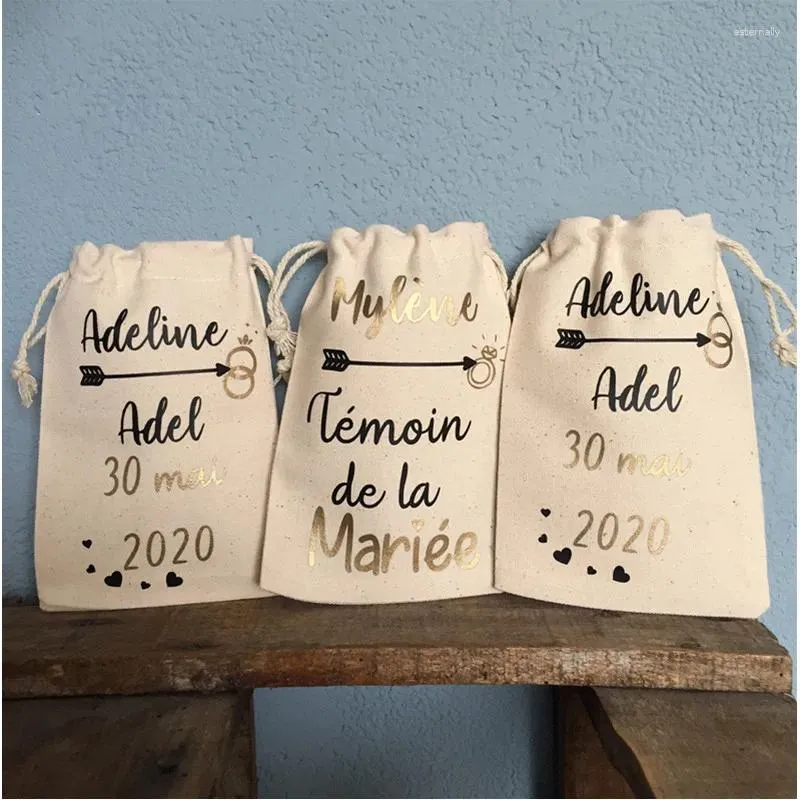 esternally
Adeline
Adel
30 mai
2020
Mylène
Témoin
de la
Mariée
Adeline
Adel
30 mai
2020